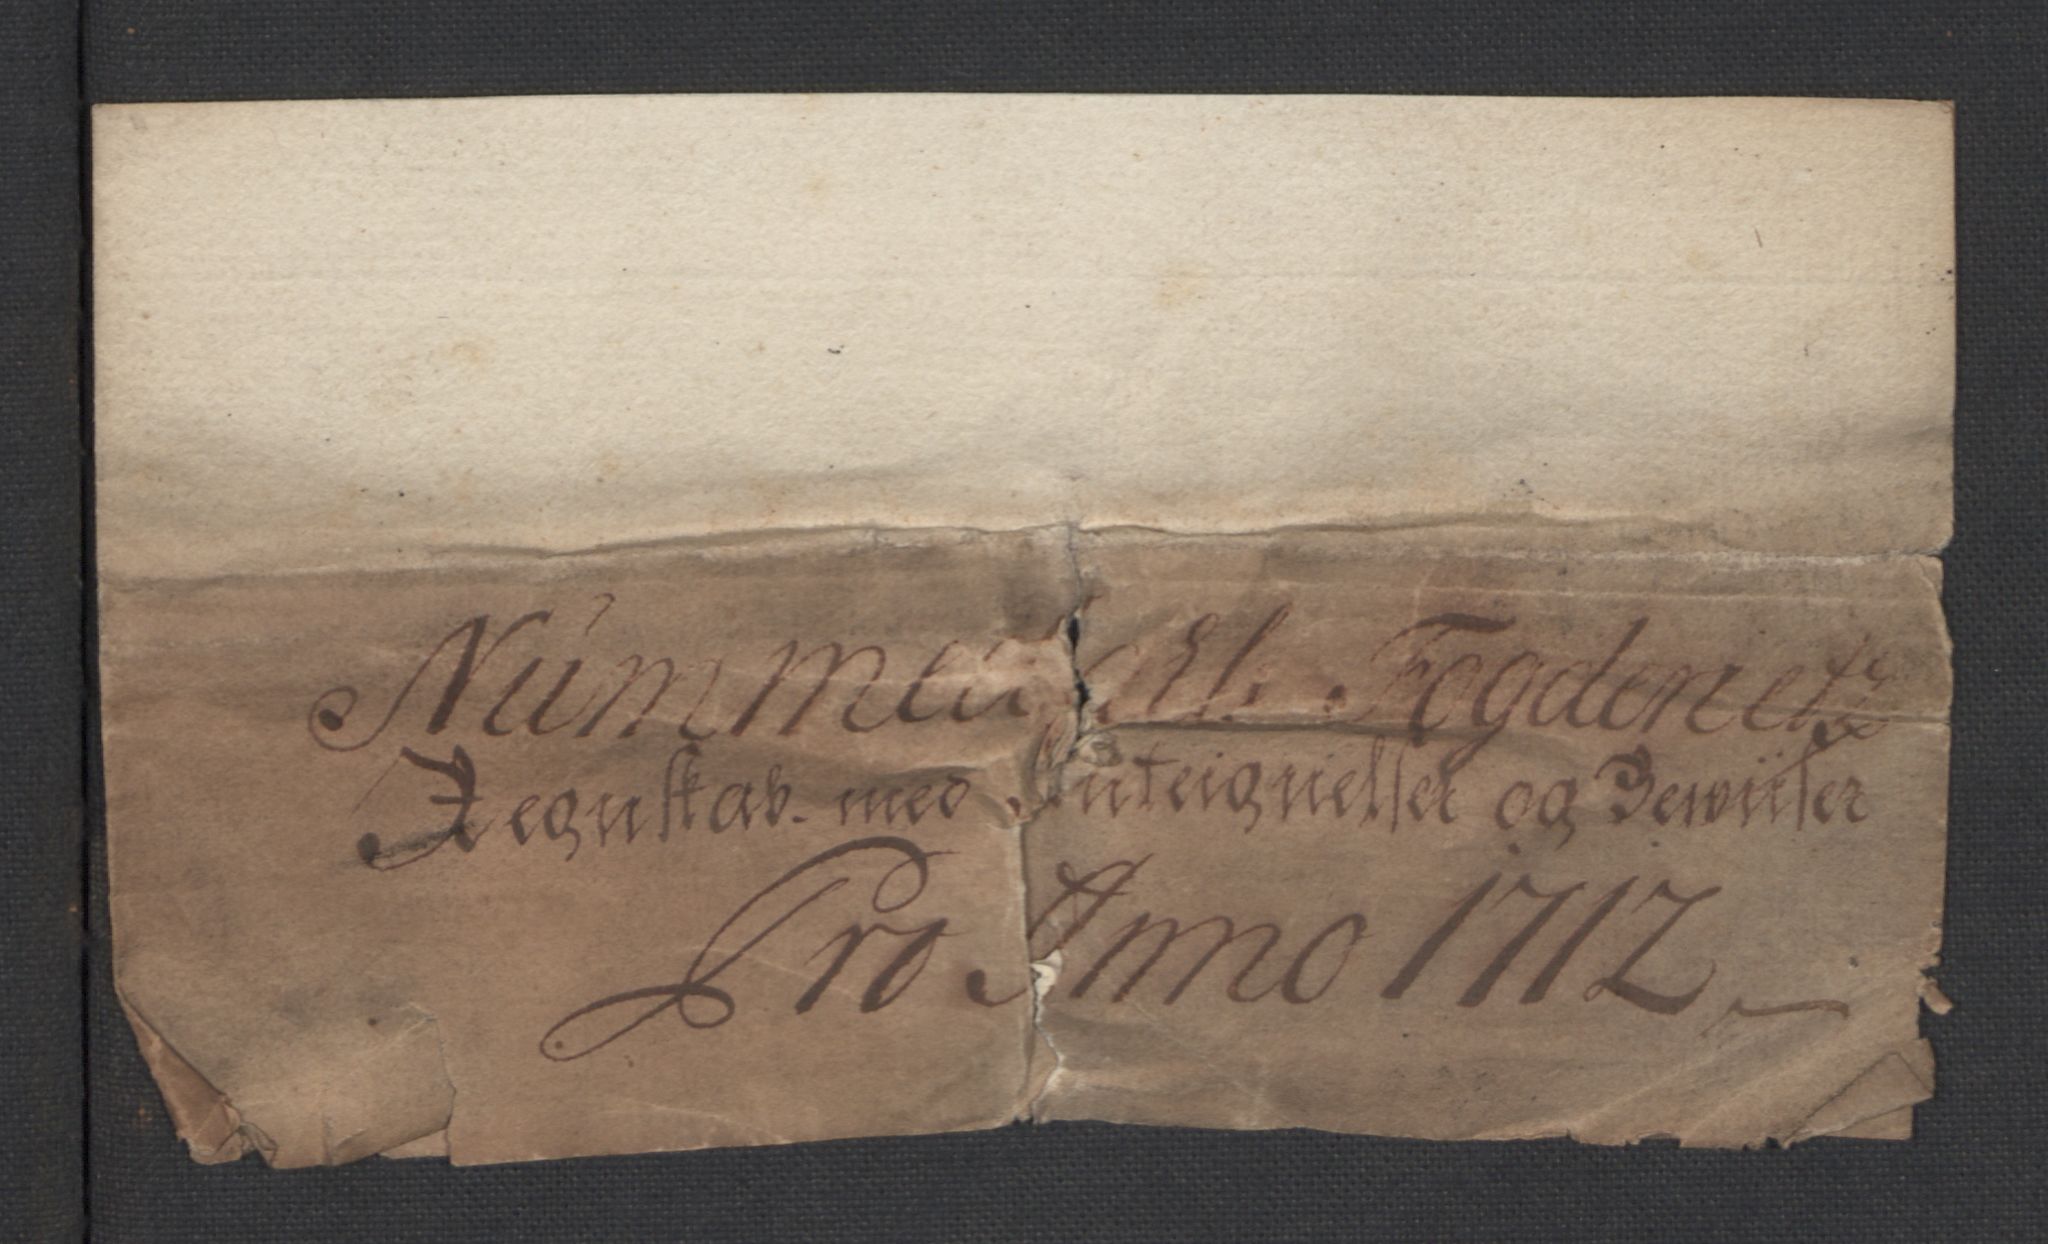 Nummedahls Fogderietz
Regnskab. med Anteignelser og Bewiiser
Pro Anno 1712